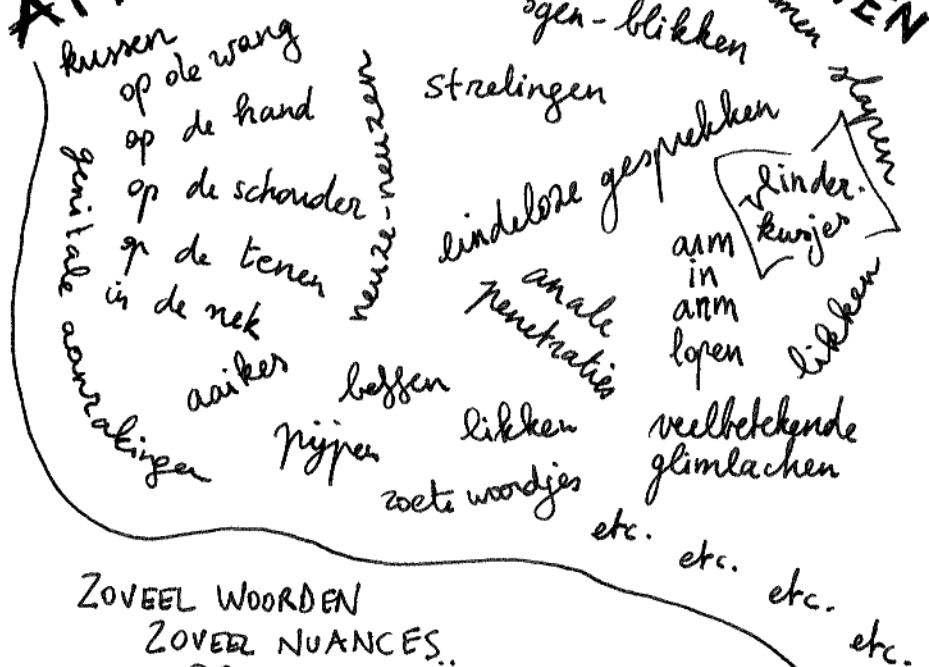 kussen
op de wang
op de hand
op de schouder
op de tenen
in de nek
genitale aanrakingen
aaikes
neuze-neuzen
-blikken
strelingen
slapen
eindeloze gesprekken
vlinder-
kusjes
arm
in
arm
lopen
anale
penetraties
likken
beffen
pijpen
likken
zoete woordjes
veelbetekende
glimlachen
etc.
etc.
etc.
etc.
ZOVEEL WOORDEN
ZOVEEL NUANCES..